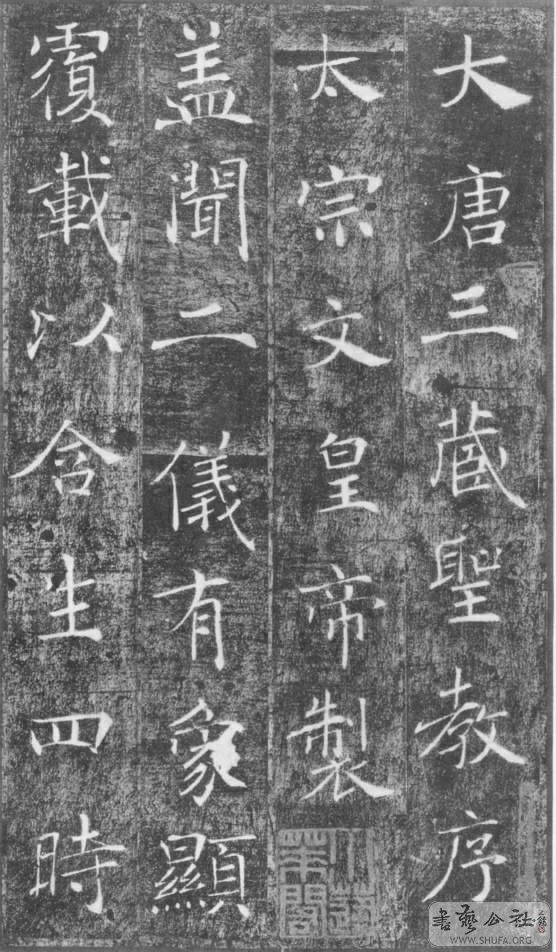 大唐三藏聖教序
太宗文皇帝製
盖聞二儀有象顯
覆載以含生四時
書艺公社
WWW.SHUFA.ORG